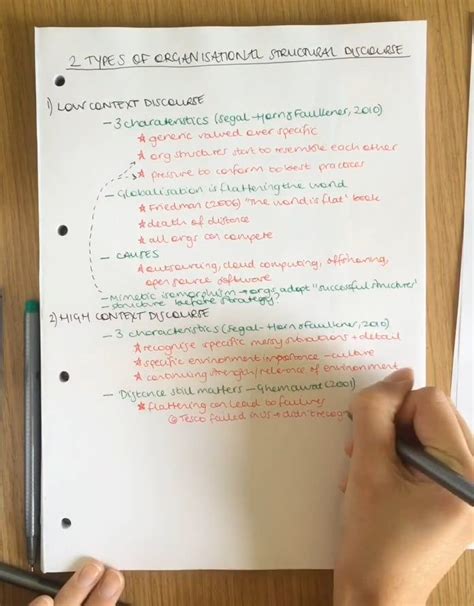 2 TYPES OF ORGANISATIONAL STRUCTURAL DISCOURSE
1) LOW CONTEXT DISCOURSE
- 3 charateristics (Segal-Horn & Faulkener, 2010)
* generic valued over specific
* org structures start to resemble each other
* pressure to conform to best practices
- Globalisation is flattering the world
* Friedman (2006) 'The world is flat' book
* death of distance
* all orgs can compete
- CAUSES
* outsourcing, cloud computing, offshoring,
open source software
- Mimetic isomorphism → orgs adopt "successful structures'
- structure before strategy?
2) HIGH CONTEXT DISCOURSE
- 3 characteristics (Segal-Horn & Faulkner, 2010)
* recognise specific messy situations + detail
* specific environment importance - culture
* continuing strength/relevance of environment
- Distance still matters - Ghemawat (2001)
* flattering can lead to failures
Tesco failed in US → didn't recogn